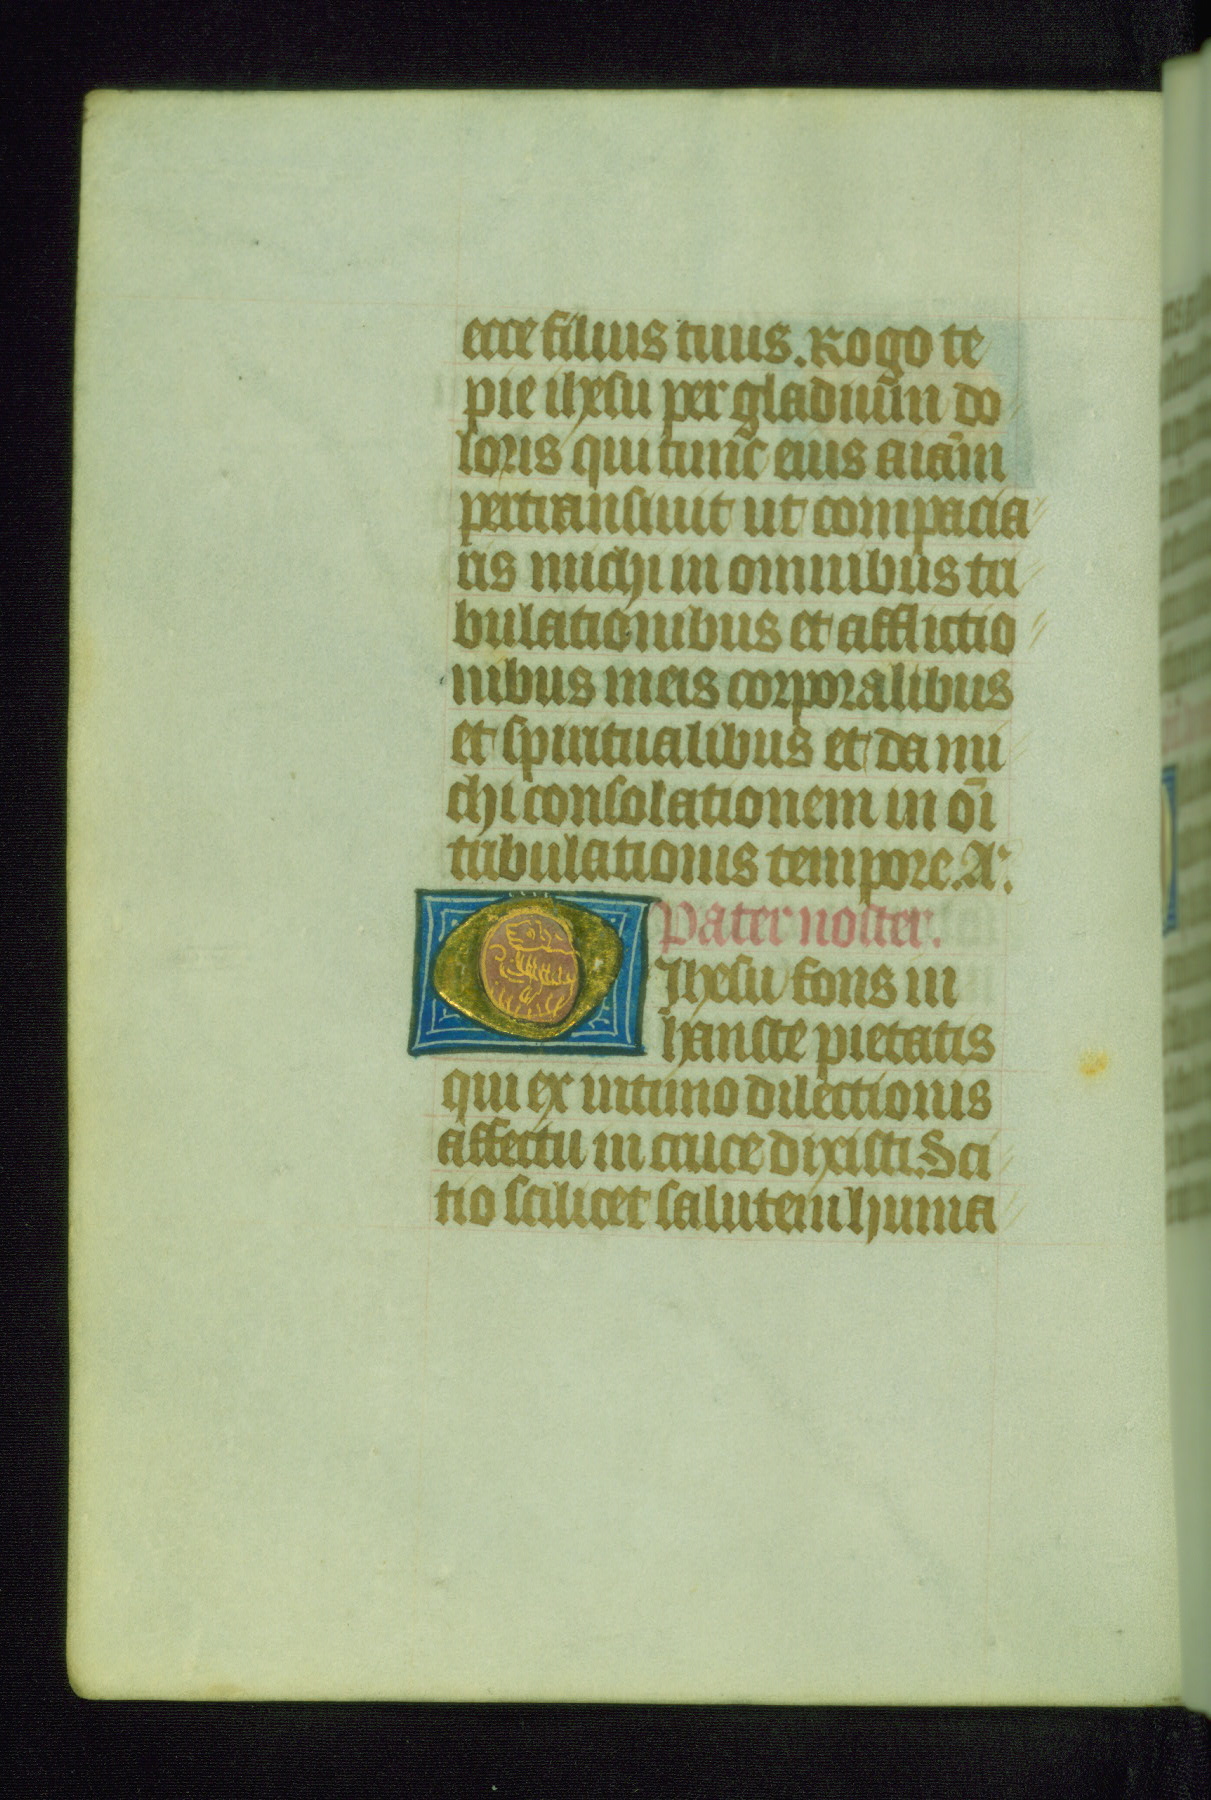 ecce filius tuus. Rogo te
pie ihesu per gladiu̅m do
loris qui tunc̅ eius aia̅m
pertransiuit ut compacia
ris michi in omnibus tri
bulationibus et afflictio
nibus meis corporalibus
et spiritualibus et da mi
chi consolationem in o̅i
tribulationis tempore. A:
Pater noster.
O Ihesu fons in
hauste pietatis
qui ex intimo dilectionis
affectu in cruce dixisti. Sci
tio scilicet salutem huma